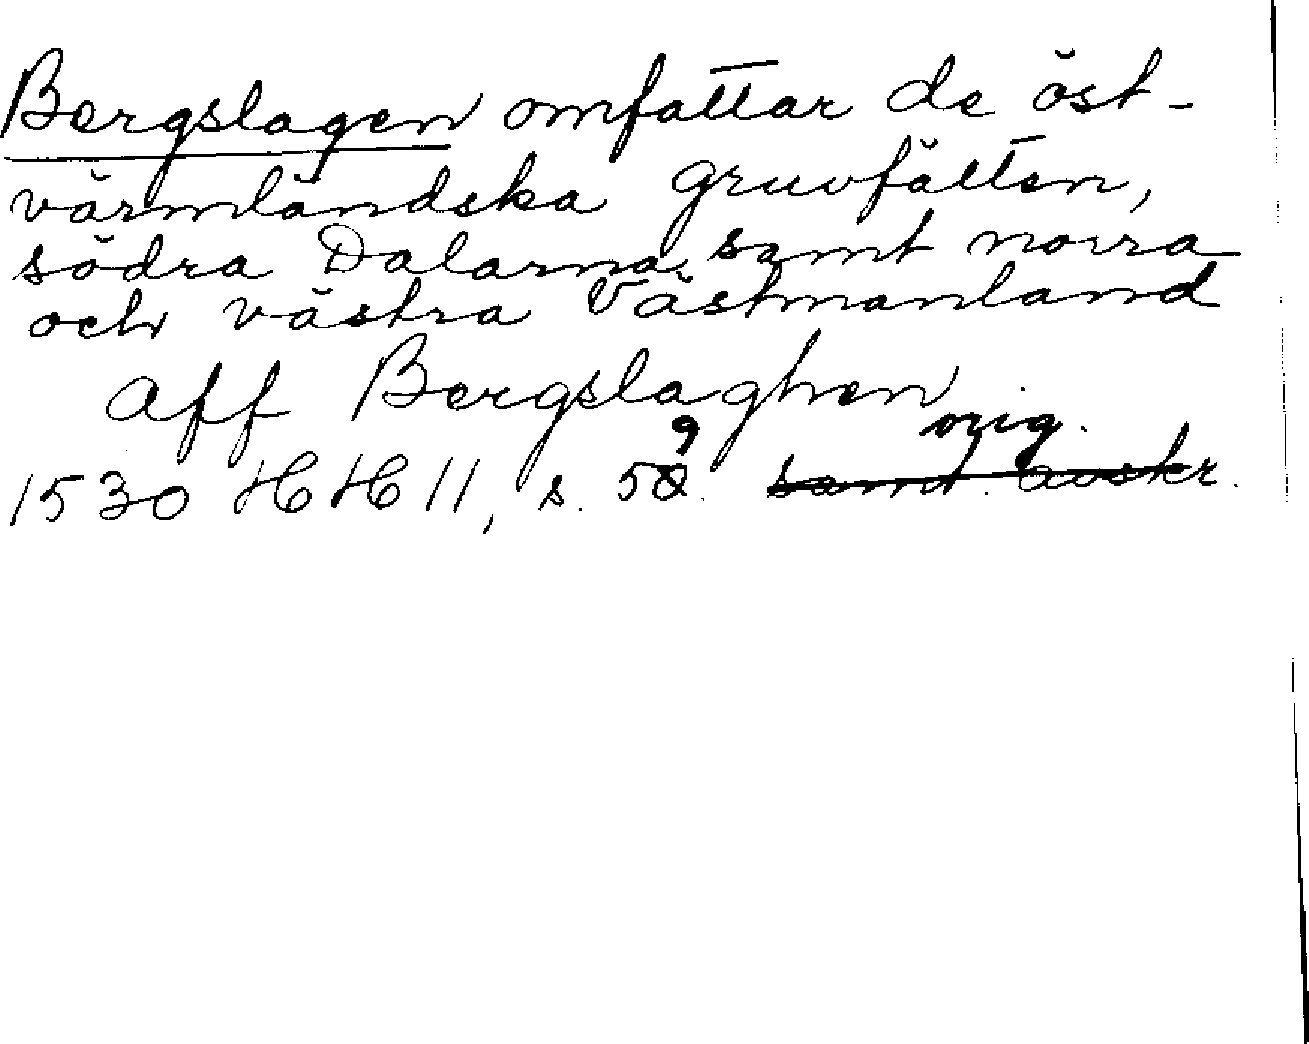 Bergslagen omfattar de öst-
värmländska gruvfälten,
södra Dalarna, samt norra
och västra Västmanland
aff Bergslaghen
1530 HH 11, s. 59. orig.
samt. avskr.